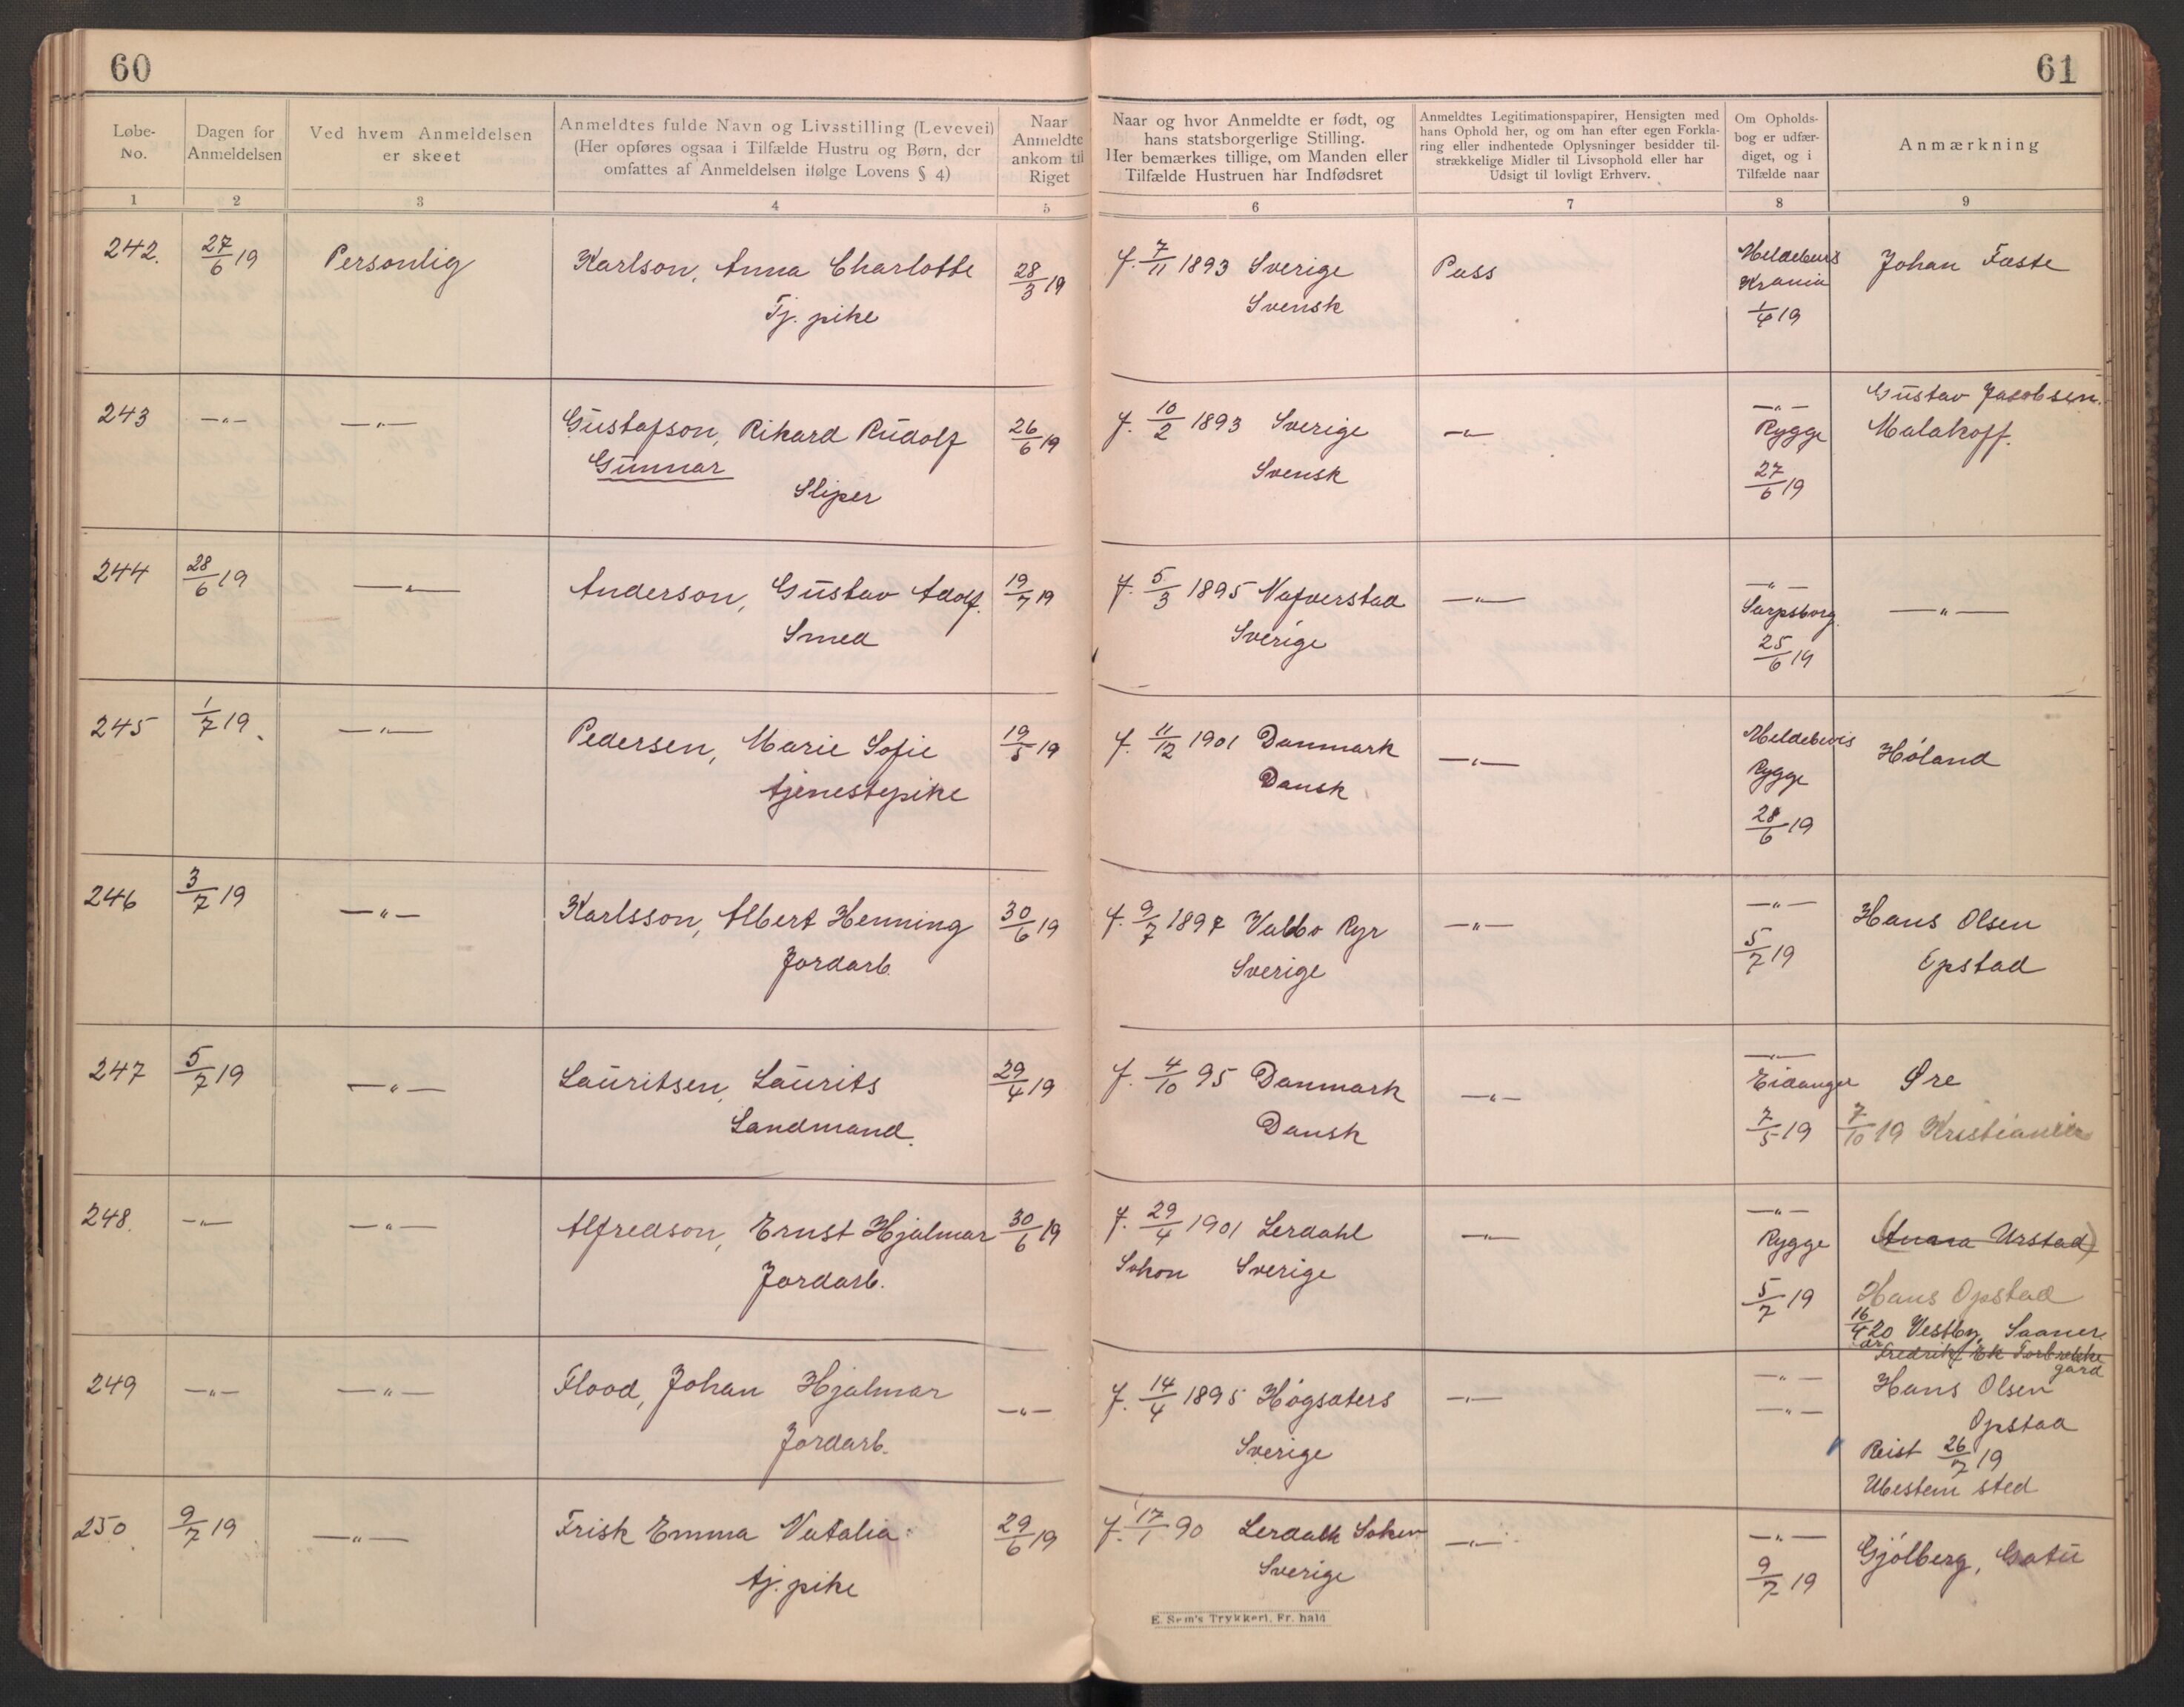 60
61
Løbe-
No.
Dagen for
Anmeldelsen
Ved hvem Anmeldelsen
er skeet
Anmeldtes fulde Navn og Livsstilling (Levevei)
(Her opføres ogsaa i Tilfælde Hustru og Børn, der
omfattes af Anmeldelsen ifølge Lovens § 4)
Naar
Anmeldte
ankom til
Riget
Naar og hvor Anmeldte er født, og
hans statsborgerlige Stilling.
Her bemærkes tillige, om Manden eller
Tilfælde Hustruen har Indfødsret
Anmeldtes Legitimationspapirer, Hensigten med
hans Ophold her, og om han efter egen Forkla-
ring eller indhentede Oplysninger besidder til-
strækkelige Midler til Livsophold eller har
Udsigt til lovligt Erhverv.
Om Opholds-
bog er udfær-
diget, og i
Tilfælde naar
Anmærkning
1 2 3 4 5 6 7 8 9
242. 27/6 19 Personlig
Karlson, Anna Charlotte
Tj. pike
28/3 19
f. 7/11 1893 Sverige
Svensk
Pass
Meldebevis
Krania
1/4 19
Johan Faste
243 —"— —"—
Gustafson, Rikard Rudolf
Gunnar
Sliper
26/6 19
f. 10/2 1893 Sverige
Svensk
—"—
—"—
Rygge
27/6 19
Gustav Jacobsen.
Malakoff.
244 28/6 19 —"—
Anderson, Gustav Adolf.
Smed
19/7 19
f. 5/3 1895 Nafverstad
Sverige
—"—
—"—
Sarpsborg.
25/6 19
—"—
245 1/7 19. —"—
Pedersen, Marie Sofie
tjenestepike
19/5 19
f. 11/12 1901 Danmark
Dansk
—"—
Meldebevis
Rygge
28/6 19
Høland
246 3/7 19 —"—
Karlsson, Albert Henning
Jordarb.
30/6 19
f. 9/7 1897 Valbo Ryr
Sverige
—"—
—"—
5/7 19
Hans Olsen
Opstad
247 5/7 19 —"—
Lauritsen, Laurits
Landmand.
29/4 19
f. 4/10 95 Danmark
Dansk
—"—
—"—
Eidanger
7/5 19
Øre
7/10 19 Kristiania
248. —"— —"—
Alfredson, Ernst Hjalmar
Jordarb.
30/6 19
f. 29/4 1901 Lerdahl
Sokon Sverige
—"—
—"—
Rygge
5/7 19
(Anna Urstad)
Hans Opstad
16/4 20 Vestby, Saaner
Fredrik Ek
gård
249 —"— —"—
Flood, Johan Hjalmar
Jordarb.
—"—
f. 14/4 1895 Högsäters
Sverige
—"—
—"—
—"—
Hans Olsen
Opstad
Reist 26/7 19
Ubestem sted
250 9/7 19 —"—
Frisk Emma Natalia
tj. pike
29/6 19
f. 17/1 90 Lerdalk Soken
Sverige
—"—
—"—
9/7 19
Gjølberg, Gatu
E. Sem's Trykkeri, Fr. hald